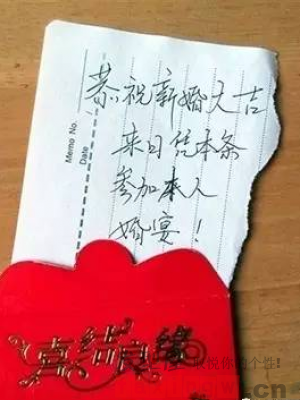 Memo No.
Date
恭祝新婚大吉
来日凭本条
参加本人
婚宴!
喜结良缘